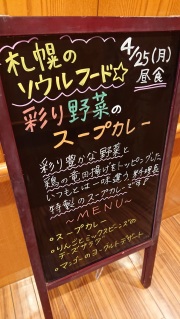 札幌の
ソウルフード☆
4/25(月)
昼食
彩り野菜の
スープカレー
彩り豊かな野菜と
鶏の竜田揚げをトッピングした
いつもとは一味違う料理長
特製のスープカレーです!
～MENU～
◦スープカレー
◦りんごとミックスビーンズの
チーズサラダ
◦マンゴーのヨーグルトデザート